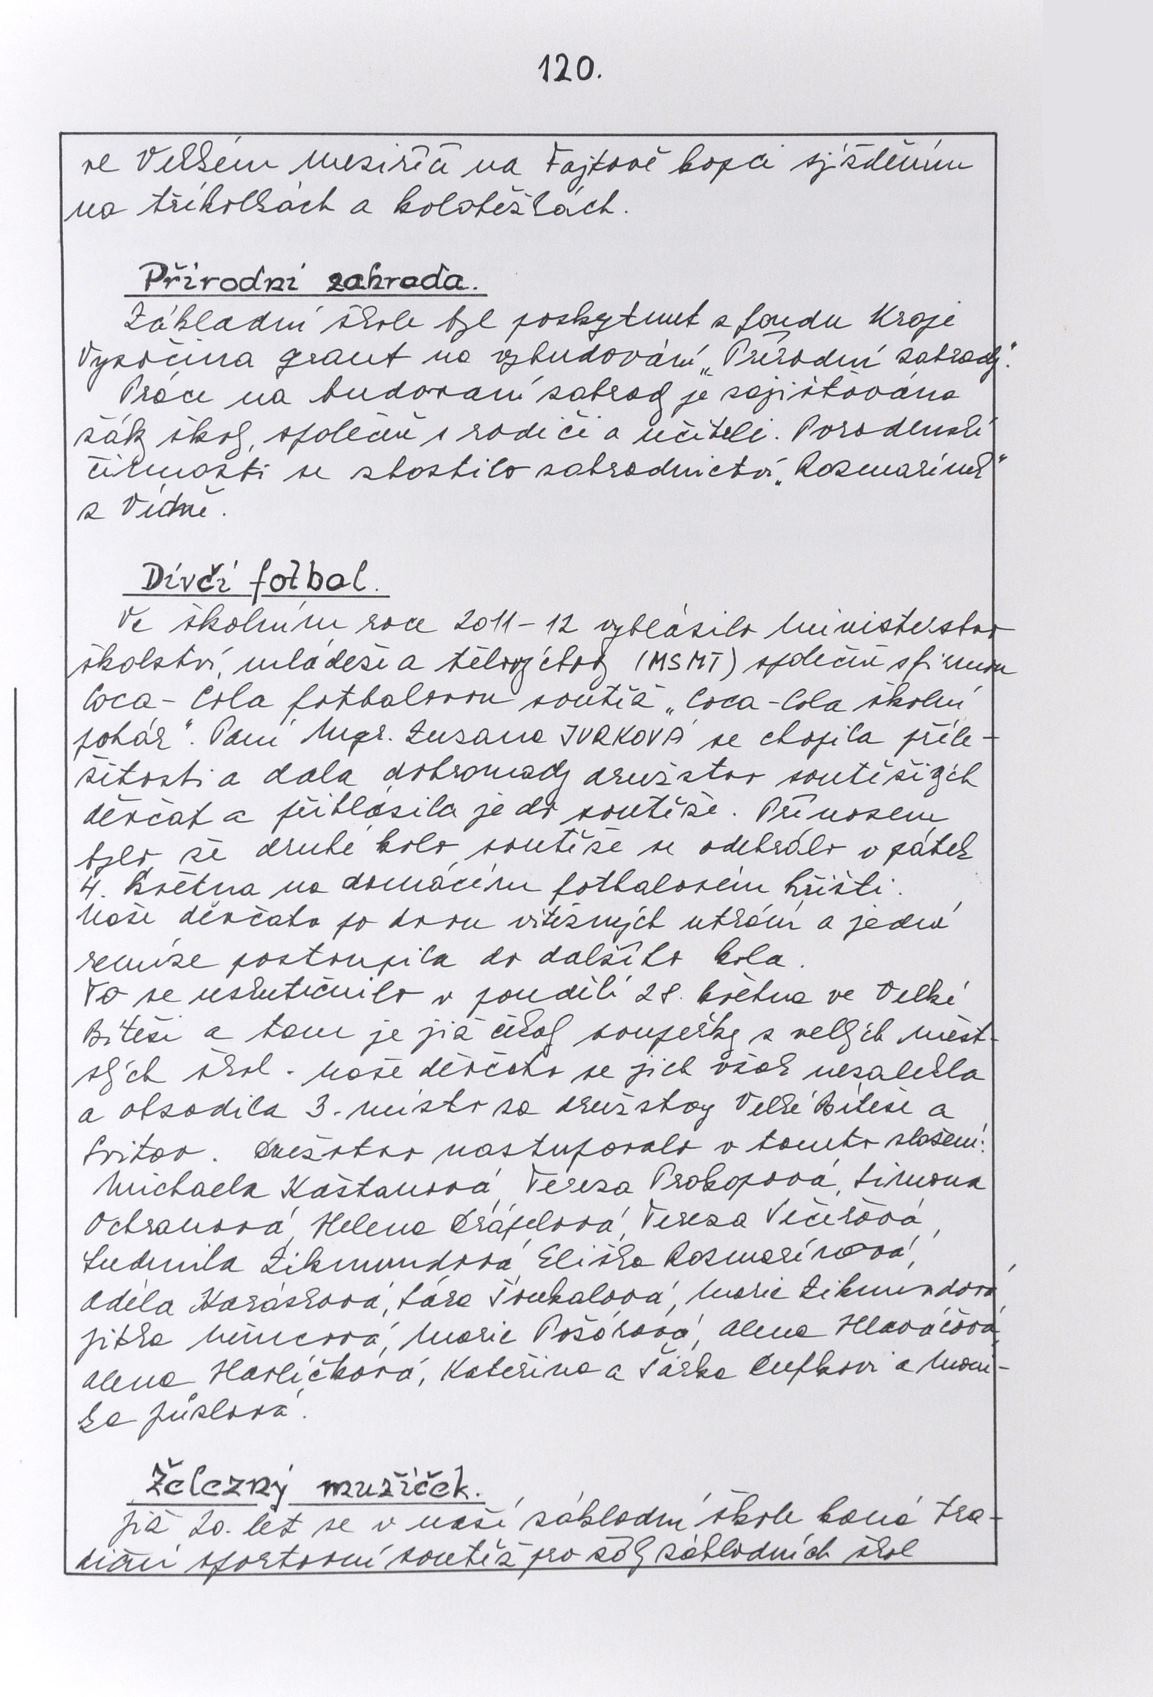 120.
ve Velkém Meziříčí na Fajtově kopci sjížděním
na tříkolkách a koloběžkách.
Přírodní zahrada.
Základní škole byl poskytnut z fondu Kraje
Vysočina grant na vybudování „Přírodní zahrady".
Práce na budovaní zahrady je zajišťována
žáky školy, společně s rodiči a učiteli. Poradenské
činnosti se zhostilo zahradnictví „Rozmarínek"
z Vídně.
Dívčí fotbal.
Ve školním roce 2011-12 vyhlásilo Ministerstvo
školství, mládeže a tělovýchovy (MSMT) společně s firmou
Coca-Cola fotbalovou soutěž „Coca-Cola školní
pohár". Paní Mgr. Zuzana JURKOVÁ se chopila příle-
žitosti a dala dohromady družstvo soutěžících
děvčat a přihlásila je do soutěže. Přínosem
bylo, že druhé kolo soutěže se odehrálo v pátek
4. května na domácím fotbalovém hřišti.
Naše děvčata po dvou vítězných utkání a jedné
remíze postoupila do dalšího kola.
To se uskutečnilo v pondělí 28. května ve Velké
Bíteši a tam je již čekaly soupeřky z velkých měst-
ských škol. Naše děvčata se jich však nezalekla
a obsadila 3. místo za družstvy Velké Bíteše a
Svitav. Družstvo nastupovalo v tomto složení:
Michaela Kaštanová, Tereza Prokopová, Simona
Ochranová, Helena Drápelová, Tereza Večeřová,
Ludmila Zikmundová, Eliška Rozmarínová,
Adéla Karásková, Sára Šoukalová, Marie Zikmundová,
Jitka Němcová, Marie Požárová, Alena Hlaváčová,
Alena Havlíčková, Kateřina a Šárka Dufkovi a Moni-
ka Půžlová.
Železný mužíček.
Již 20. let se v naší základní škole koná tra-
diční sportovní soutěž pro žáky základních škol